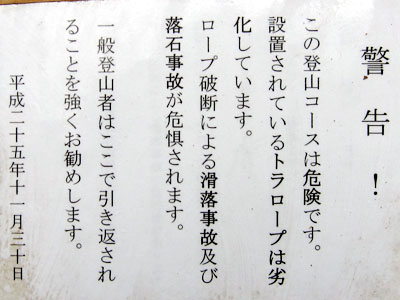 警告!
この登山コースは危険です。
設置されているトラロープは劣
化しています。
ロープ破断による滑落事故及び
落石事故が危惧されます。
一般登山者はここで引き返され
ることを強くお勧めします。
平成二十五年十一月三十日